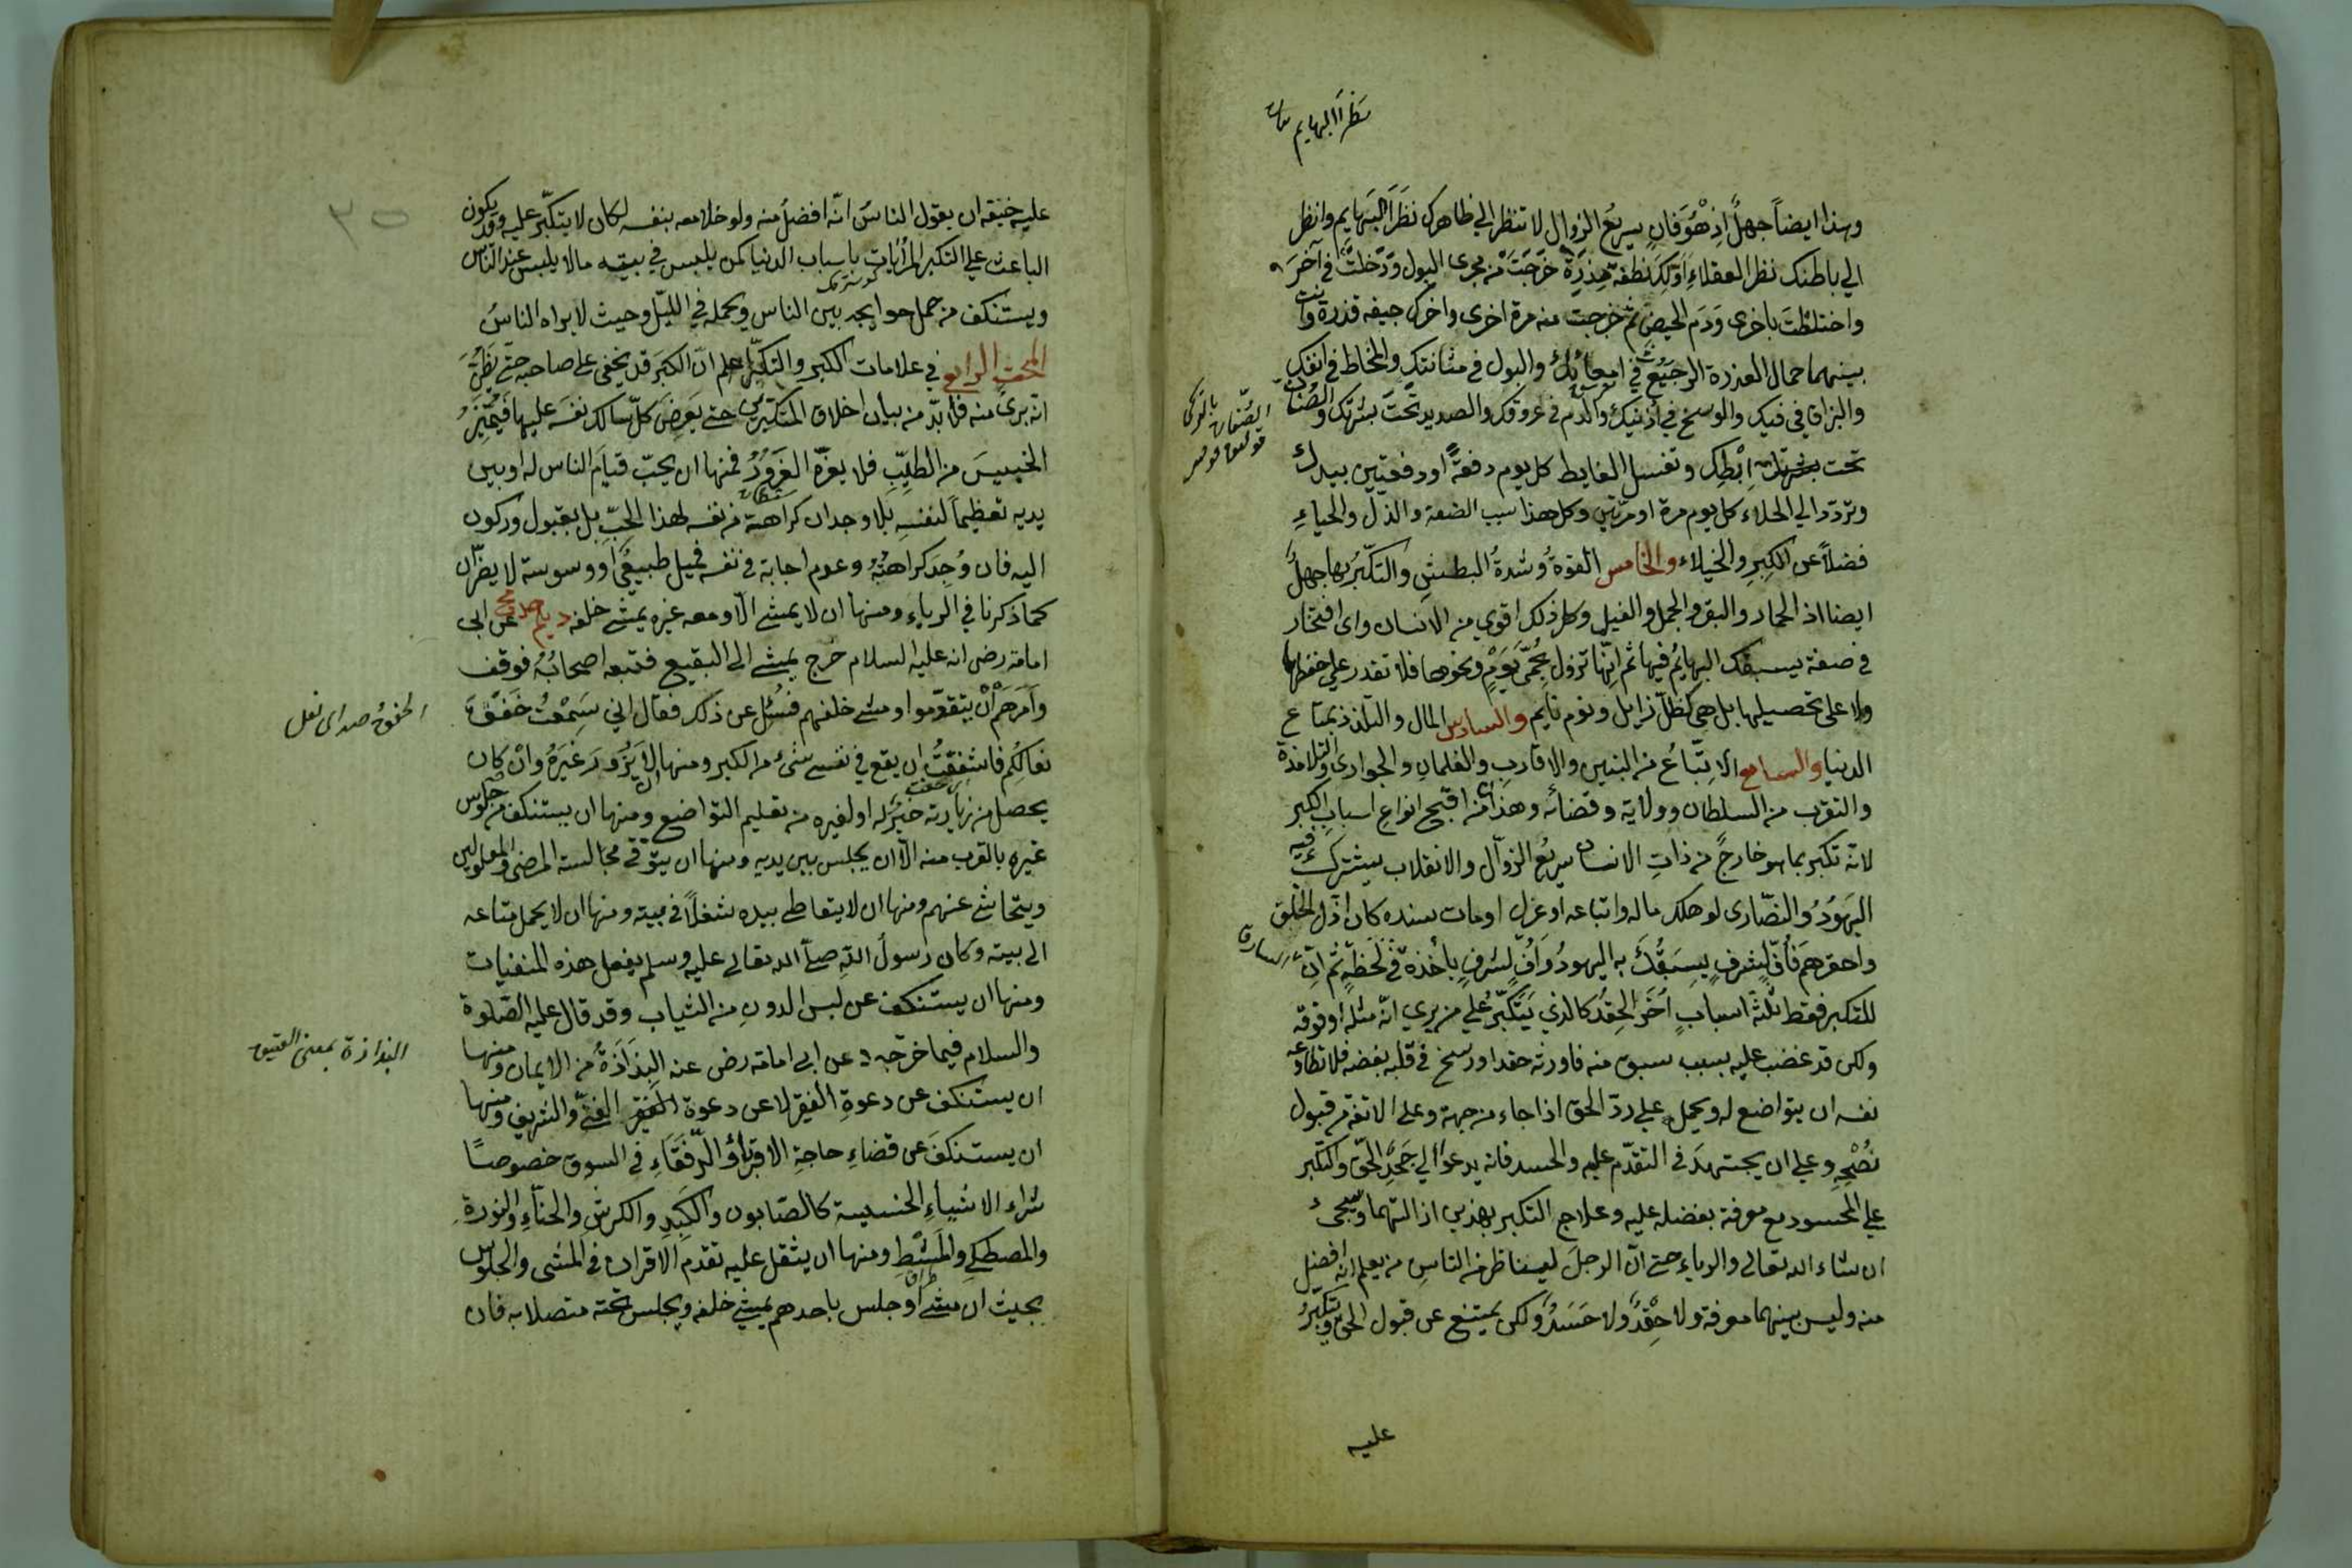 نظر البهايم
وهذا ايضاً جهلٌ اذ هُوَ فَانٍ سريعُ الزوال لا تنظر الي ظاهرك نَظَرَ البَهايم وانظر
الي باطنك نظر العقلاءِ اوّلك نطفةٌ مذرةٌ خرجتَ من مجرى البول ودخلتَ في آخر
واختلطتَ باخرى وَدَم الحيض ثم خرجت منه مرة اخرى واخرك جيفه قذرة وانت
بينهما حمال العذرة الرجيع في امعائك والبول في مثانتك والمخاط في انفك
والبزاق في فيك والوسخ في أذنيك والدم في عروقك والصديد تحتَ بشرتك والصُنَان
تحت اِبْطِك وتغسل الغايط كل يوم دفعةً او دفعتين بيدك
وتردّد الي الخلاء كل يوم مرة او مرّتين وكل هذا سبب الضعة والذل والحياءِ
فضلاً عن الكِبرِ والخيلاء والخامس القوةُ وشدةُ البطشِ والتكبّرُ بها جهلٌ
ايضا اذ الحمار والبقر والجمل والفيل وكل ذلك اقوي من الانسان واى افتخار
في صفة يسبقك البهائمُ فيها ثم انّها تزول بحُمّى يَومٍ ونحوها فلا تقدر علي حفظها
ولا على تحصيلها بل هي كظلّ زايل ونوم نايم والسادس المال والتلذذ بمتاع
الدنيا والسابع الاتباعُ من البنين والاقاربِ والغلمانِ والجوارى والتلامذة
والتقرب من السلطان وولاية وقضائه وهذان من اقبح انواع اسبابِ الكبر
لانه تكبر بما هو خارجٌ من ذاتِ الانسان سريعُ الزوّال والانقلاب يشترك فيه
اليهَوُدُ والنصّارى لو هلك ماله واتباعه او عزل او مات سنده كان اذل الخلق
واحقرهم فأفّ لشرفٍ يسبقُكَ به اليهودُ وَأُفّ لشرفٍ يأخذه في لحظةٍ ثم انّ
للتكبر فقط ثلثة اسبابٍ أُخَرَ الحِقدُ كالذي يتكبّرُ علي من يري انّه مثله او فوقه
ولكن قد غضب عليه بسبب سبق منه فاورثه حقدا ورسخ في قلبه بغضه فلا تطاوعه
نفسه ان يتواضع له ويحمل علي ردّ الحق اذا جاء من جهة وعلي الانفة من قبول
نُصْحِهِ وعلي ان يجتهدَ في التقدّم عليه والحسد فانه يدعو الي جحدِ الحق والتكبر
علي المحسود مع معرفة بفضله عليه وعلاج التكبر بهذين ازالتهما وسيجئ
ان شاء الله تعالى والرياء حتى انّ الرجلَ ليناظر من الناسِ من يعلم انه افضل
منه وليس بينهما معرفة ولا حِقْدٌ ولا حَسَدٌ ولكن يمتنع عن قبول الحق ويتكبّرُ
عليه
عليه خيفة ان يقول الناسُ انّه افضلُ منه ولو خلا معه بنفسه لكان لا يتكبّر عليه وقد يكون
الباعث علي التكبر المرأيات باسباب الدنيا كمن يلبس في بيته مالا يلبس عند الناس
ويستنكف من حمل حوايجه بين الناس ويحمله في الليّل وحيث لا يراه الناسُ
المبحث الرابع في علامات الكبر والتكبّر اعلم انّ الكبَر قد يخفى على صاحبه حتى يَظُنّ
انّه برئٌ منه فلا بدّ من بيان اخلاق المتكبّرين حتى يَعرِضَ كلّ سالك نفسَه عليها فيميّز
الخبيسَ من الطيّبِ فلا يغرّه الغَرورُ فمنها ان يحبّ قيامَ الناس له او بين
يديه تعظيماً لنفسهِ بلا وجدان كراهة من نفسه لهذا الحبِّ بل بقبول وركون
اليه فان وُجِدَ كراهتُهُ وعدم اجابة في نفسه فميل طبيعىٌ او وسوسة لا يضرّان
كما ذكرنا في الرياء ومنها ان لا يمشى الّا ومعه غيره يمشى خلفه عن ابى
امامة رضى انه عليه السلام خرج يمشى الى البقيع فتبعه اصحابُهُ فوقف
وأمرَهُم أنْ يتقدّموا ومشى خلفهم فسُئل عن ذلك فقال اني سَمِعْتُ خفقَ
نعالكُم فاشفقتُ ان يقع في نفسى شئ من الكبر ومنها ان لا يَزُورَ غَيرَهُ وانْ كان
يحصل من زيارته خيرٌ له او لغيره من تعليم التواضع ومنها ان يستنكف من جلوس
غيره بالقرب منه الّا ان يجلس بين يديه ومنها ان يتوقّى مجالسة المرضى والمعلولين
ويتحاشى عنهم ومنها ان لا يتعاطى بيده شغلاً في بيته ومنها ان لا يحمل متاعه
الى بيته وكان رسولُ اللهِ صلى الله تعالى عليه وسلم يفعل هذه المنفيات
ومنها ان يستنكف عن لبس الدونِ من الثياب وقد قال عليه الصّلوة
والسلام فيما خرّجه د عن ابي امامة رض عنه البَذَاذَةُ من الايمان ومنها
ان يستنكف عن دعوةِ الفقير لا عن دعوة الغنىّ والشريف ومنها
ان يستنكفَ عن قضاءِ حاجةِ الاقرباءِ والرّفَقَاءِ في السوق خصوصًا
شراء الاشياءِ الخسيسة كالصّابون والكَبِدِ والكرشِ والحنّاءِ والنورةِ
والمصطكى والمشْطِ ومنها ان يثقل عليه تقدم الاقران في المشى والجلوس
بحيث ان مشى او جلس باحدهم يمشى خلفه ويجلس تحته متصلا به فان
الخفق صداى نعل
البذاذة بمعنى العتيق
٣٥